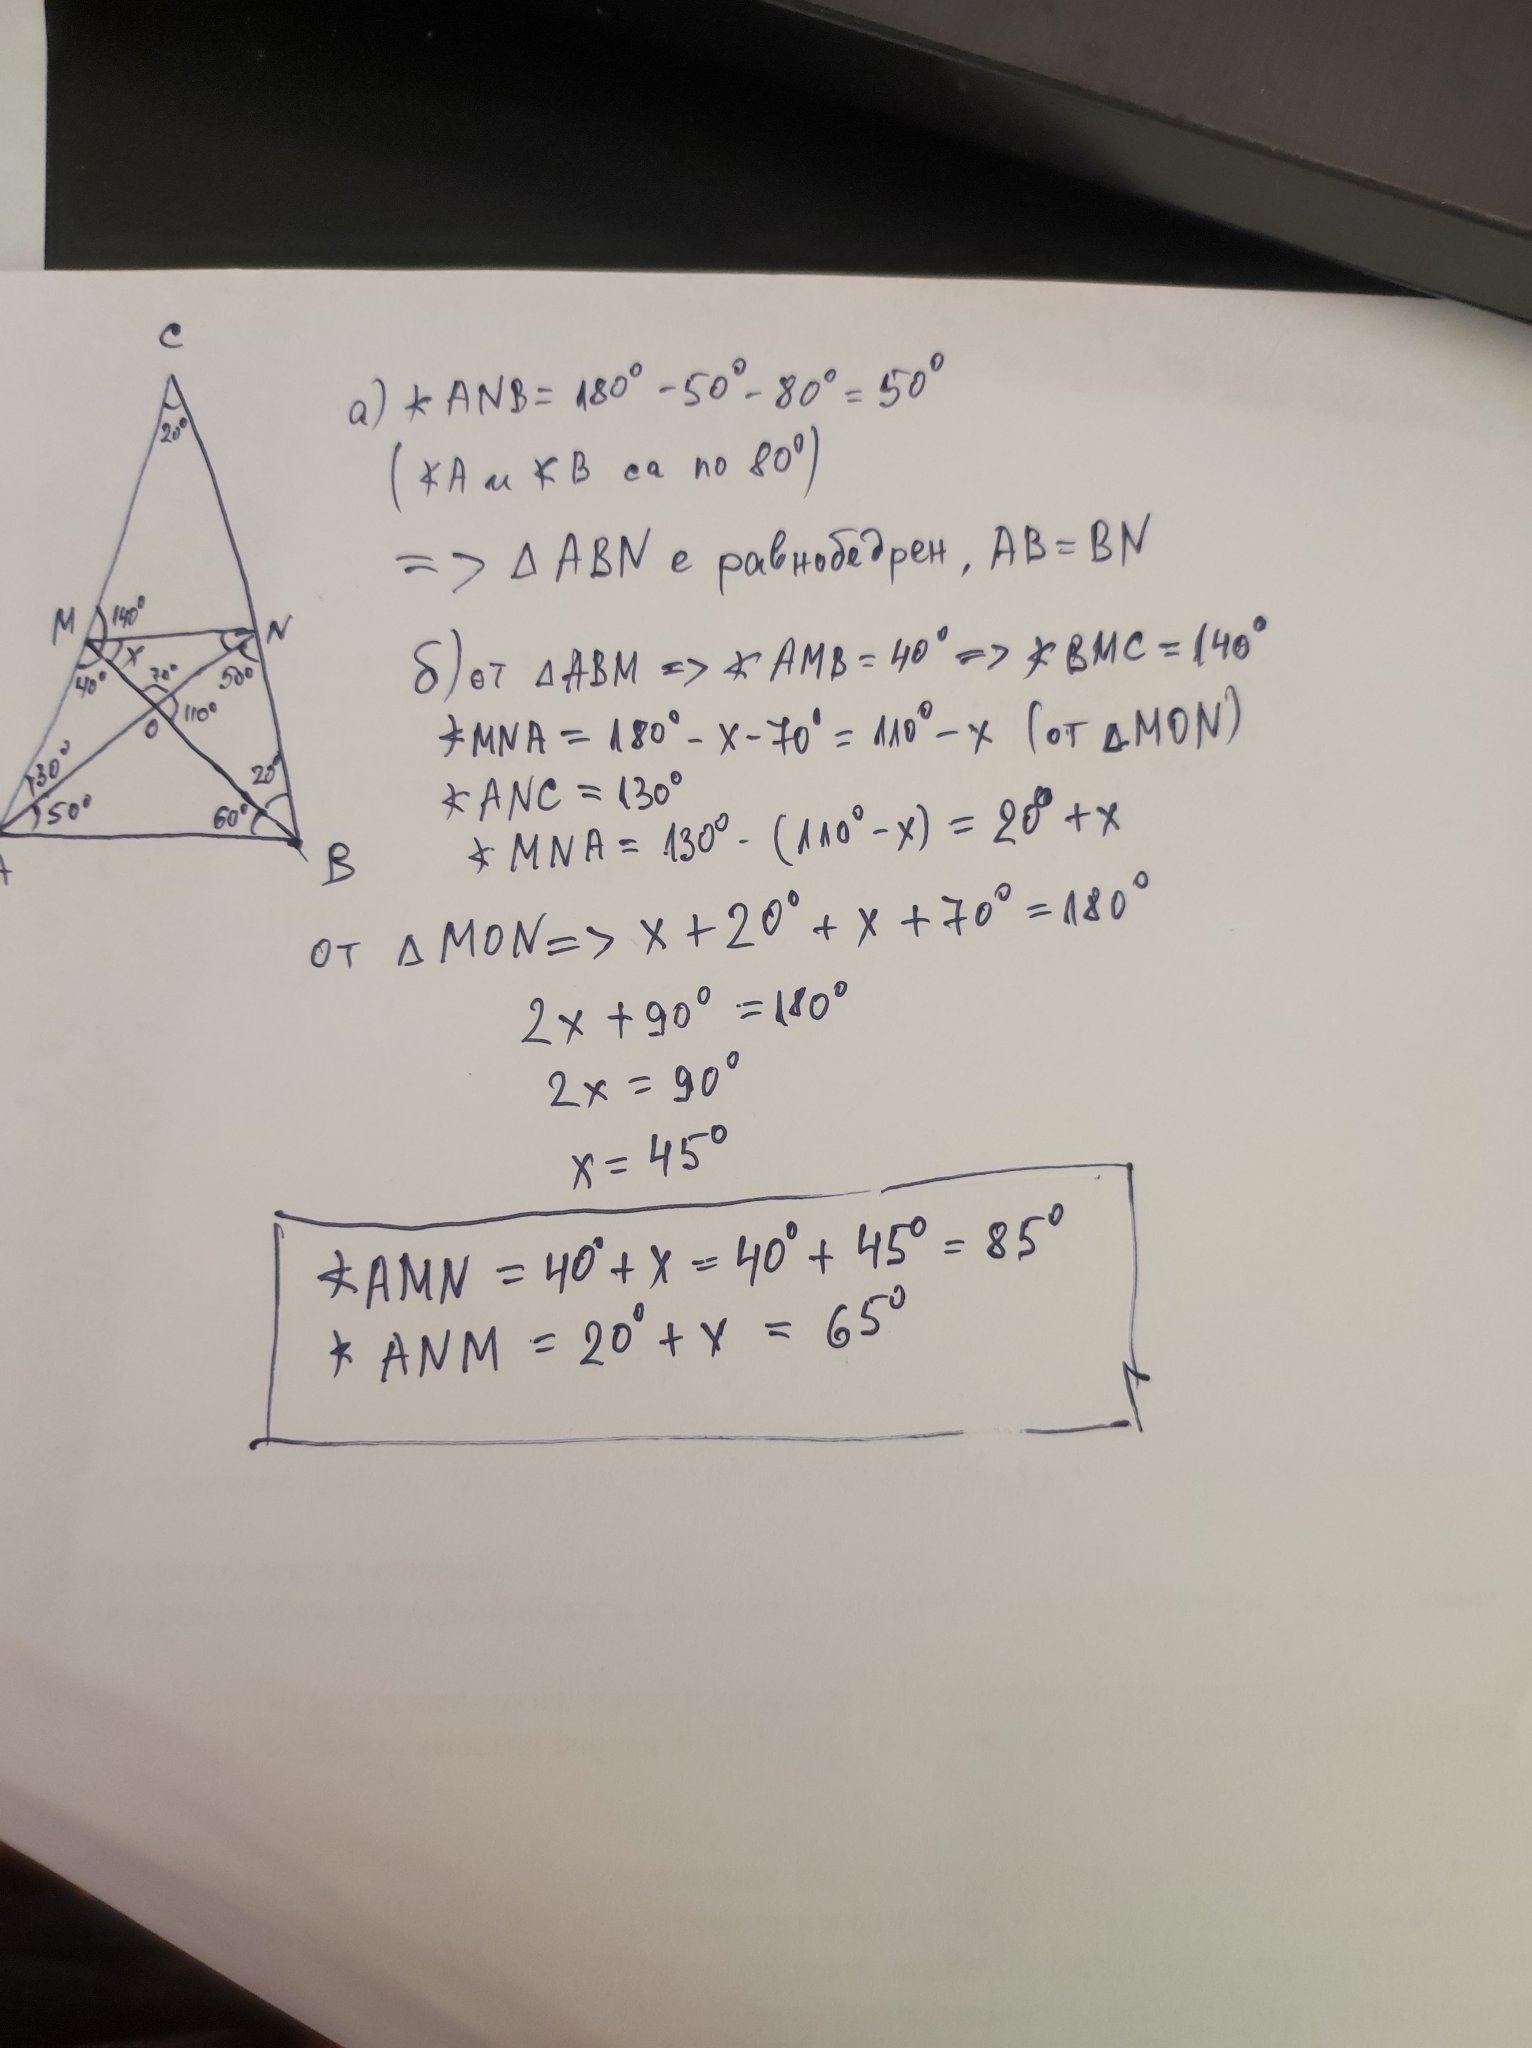 C
20°
M
140°
N
x
70°
40°
50°
110°
O
30°
20°
50°
60°
A
B
а) ∢ANB = 180° - 50° - 80° = 50°
(∢A и ∢B са по 80°)
=> △ABN е равнобедрен, AB = BN
б) от △ABM => ∢AMB = 40° => ∢BMC = 140°
∢MNA = 180° - x - 70° = 110° - x (от △MON)
∢ANC = 130°
∢MNA = 130° - (110° - x) = 20° + x
от △MON => x + 20° + x + 70° = 180°
2x + 90° = 180°
2x = 90°
x = 45°
∢AMN = 40° + x = 40° + 45° = 85°
∢ANM = 20° + x = 65°